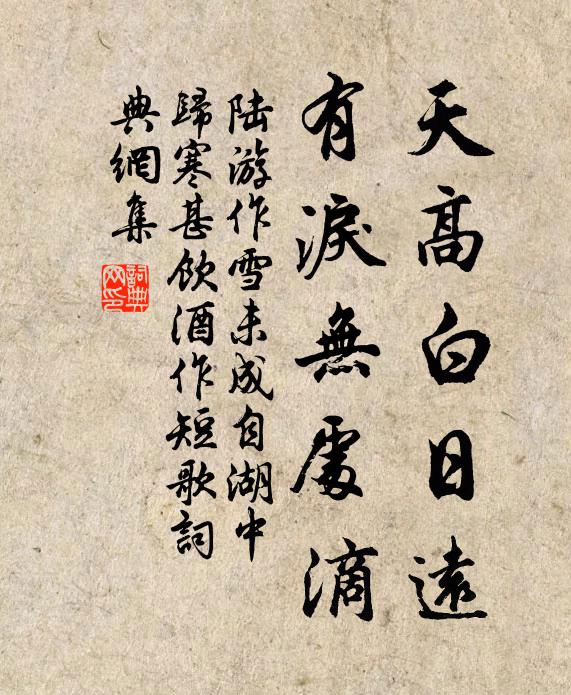 天高白日遠
有淚無處滴
陸游作雪未成自湖中
歸寒甚飲酒作短歌詞
典網集
詞典網印